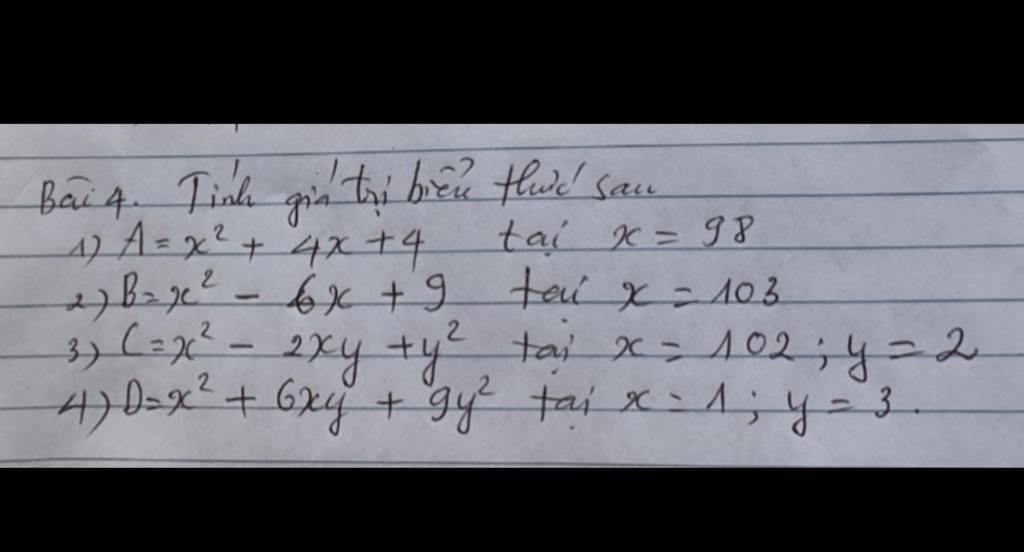 Bài 4. Tính giá trị biểu thức sau
1) A = x² + 4x + 4 tại x = 98
2) B = x² - 6x + 9 tại x = 103
3) C = x² - 2xy + y² tại x = 102 ; y = 2
4) D = x² + 6xy + 9y² tại x = 1 ; y = 3.